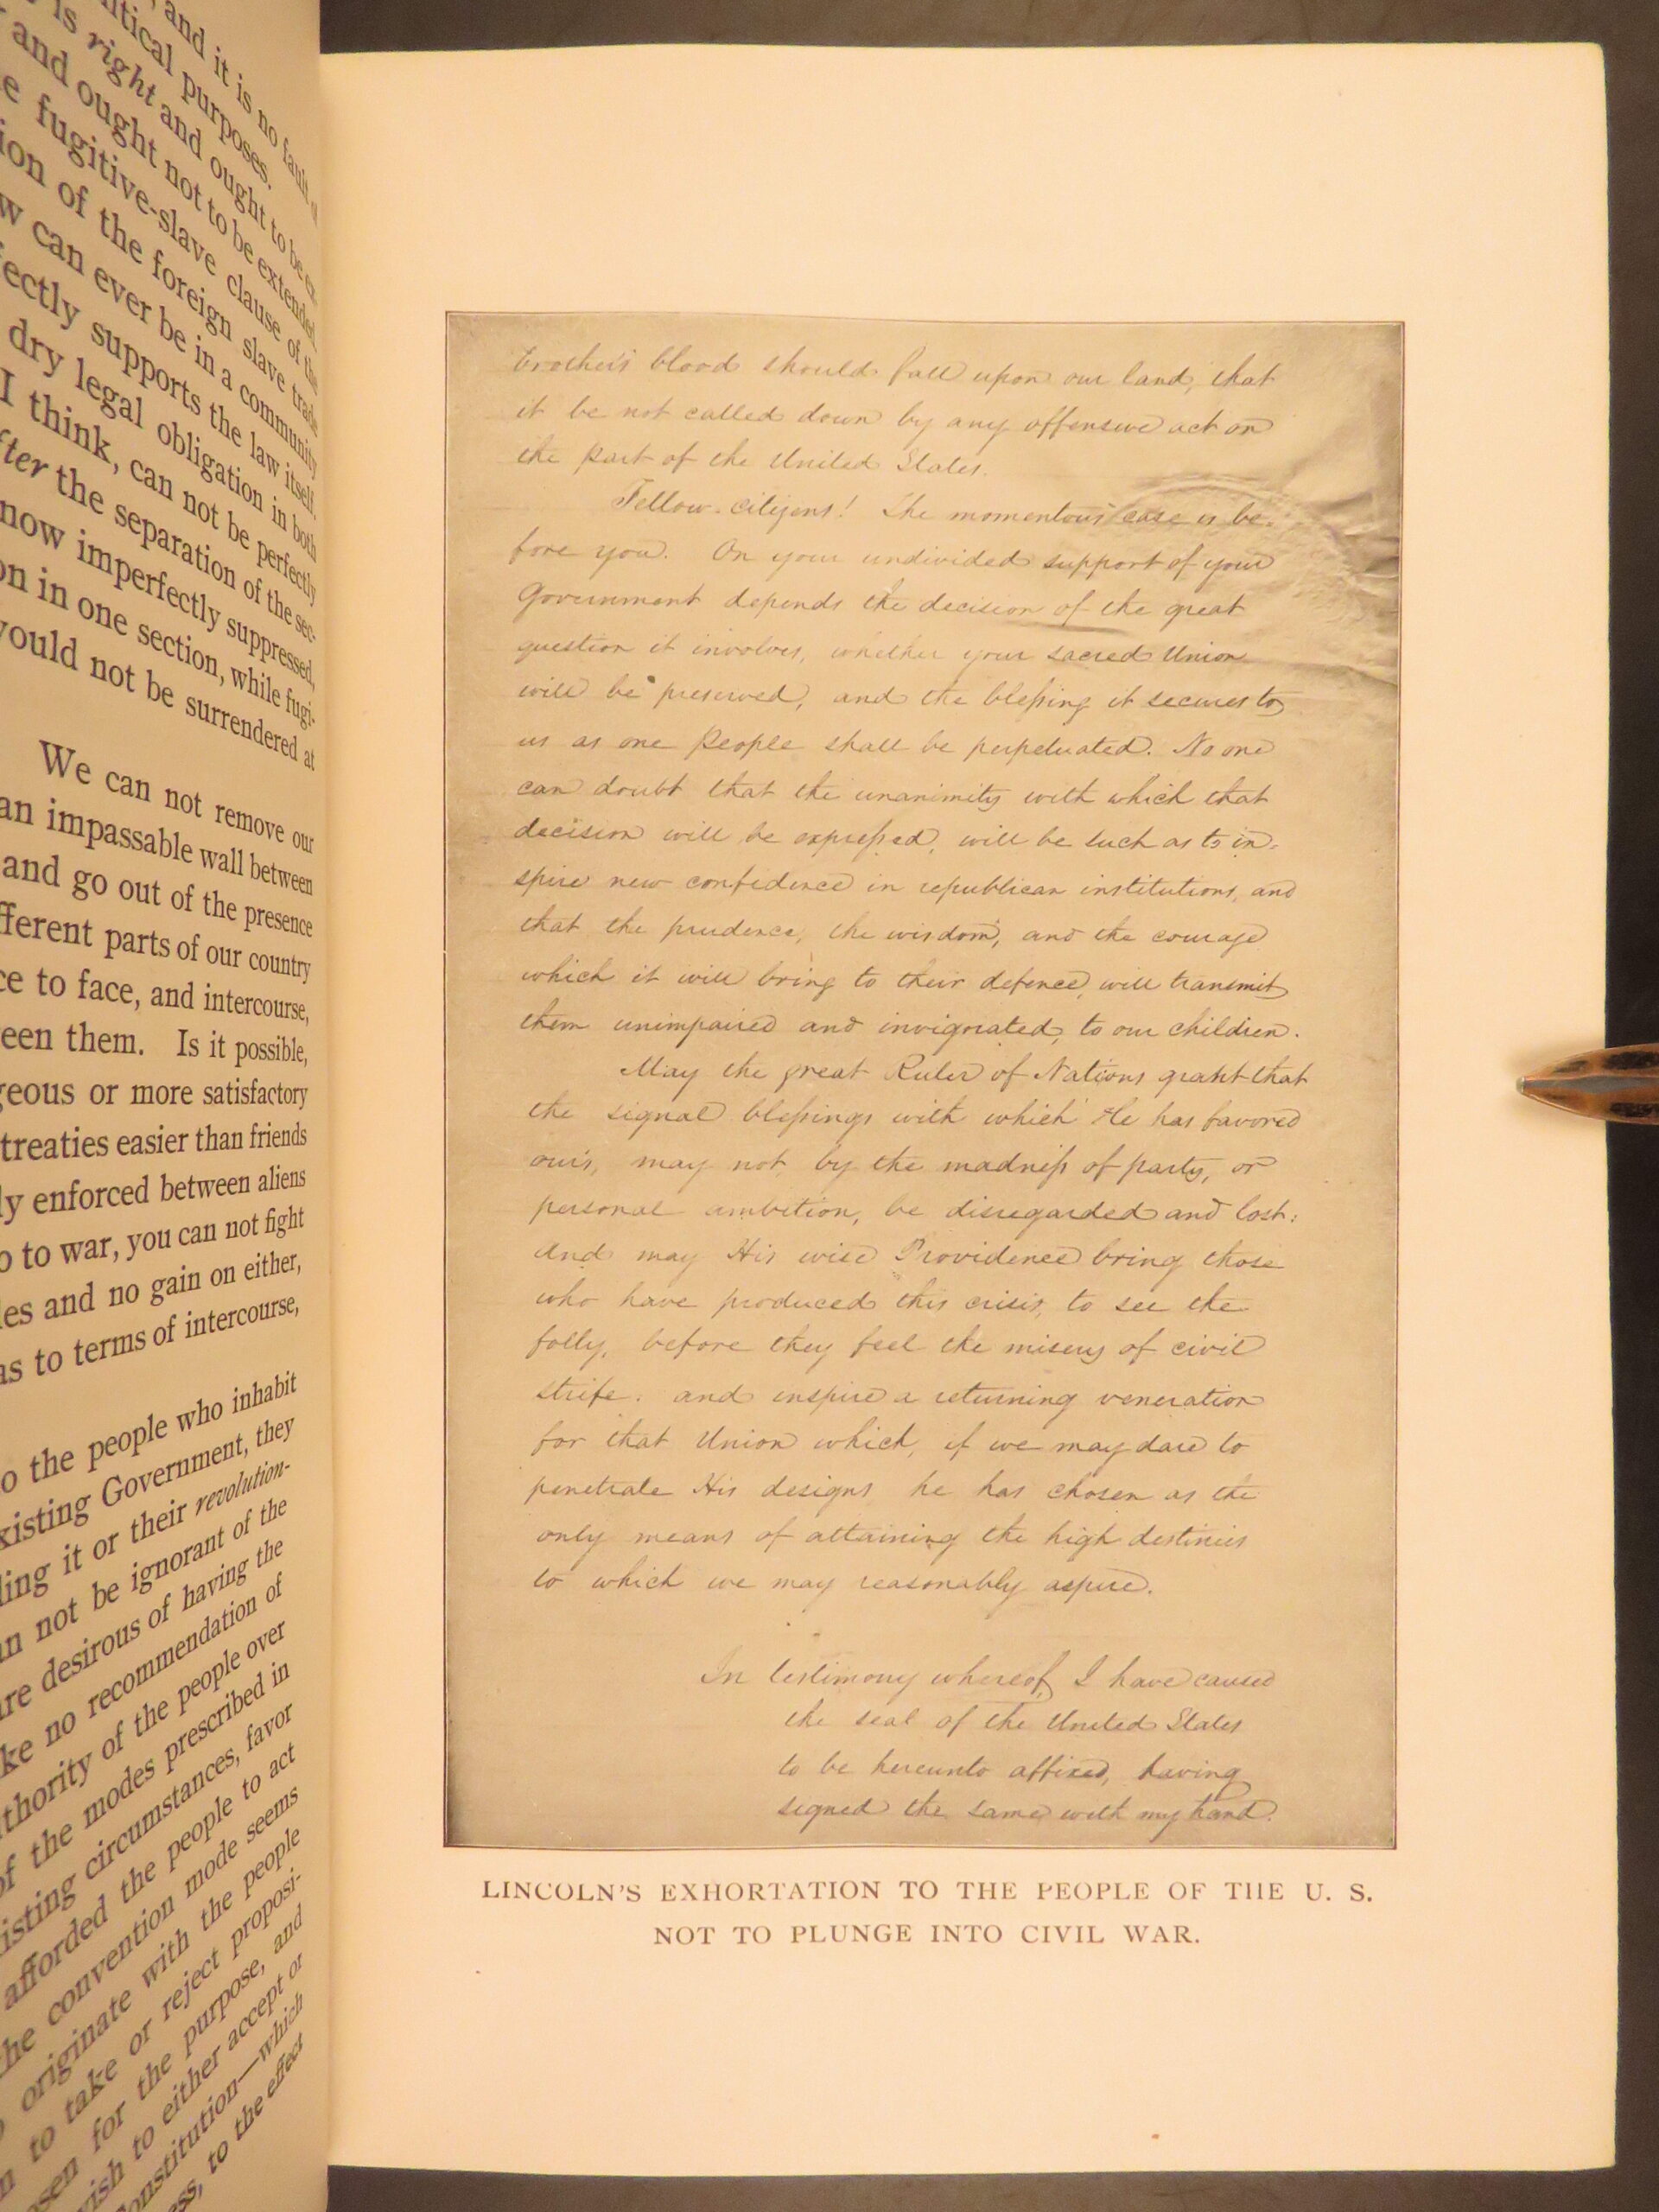 , and it is no fault
litical purposes.
is right and ought to be ex-
and ought not to be extended
e fugitive-slave clause of the
ion of the foreign slave trade
w can ever be in a community
fectly supports the law itself.
dry legal obligation in both
I think, can not be perfectly
fter the separation of the sec-
now imperfectly suppressed,
on in one section, while fugi-
would not be surrendered at
We can not remove our
an impassable wall between
and go out of the presence
fferent parts of our country
ce to face, and intercourse,
een them. Is it possible,
geous or more satisfactory
treaties easier than friends
ly enforced between aliens
o to war, you can not fight
les and no gain on either,
as to terms of intercourse,
o the people who inhabit
xisting Government, they
ling it or their revolution-
n not be ignorant of the
re desirous of having the
ke no recommendation of
thority of the people over
of the modes prescribed in
isting circumstances, favor
afforded the people to act
he convention mode seems
originate with the people
to take or reject proposi-
sen for the purpose, and
vish to either accept or
onstitution—which
ess, to the effect
brother's blood should fall upon our land, that
it be not called down by any offensive act on
the part of the United States.
Fellow-citizens! The momentous case is be-
fore you. On your undivided support of your
Government depends the decision of the great
question it involves, whether your sacred Union
will be preserved, and the blessing it secures to
us as one People shall be perpetuated. No one
can doubt that the unanimity with which that
decision will be expressed, will be such as to in-
spire new confidence in republican institutions, and
that the prudence, the wisdom, and the courage
which it will bring to their defence, will transmit
them unimpaired and invigorated, to our children.
May the great Ruler of Nations grant that
the signal blessings with which He has favored
ours, may not, by the madness of party, or
personal ambition, be disregarded and lost:
And may His wise Providence bring those
who have produced this crisis, to see the
folly, before they feel the misery of civil
strife: and inspire a returning veneration
for that Union which, if we may dare to
penetrate His designs he has chosen as the
only means of attaining the high destinies
to which we may reasonably aspire.
In testimony whereof, I have caused
the seal of the United States
to be hereunto affixed, having
signed the same with my hand.
LINCOLN'S EXHORTATION TO THE PEOPLE OF THE U. S.
NOT TO PLUNGE INTO CIVIL WAR.